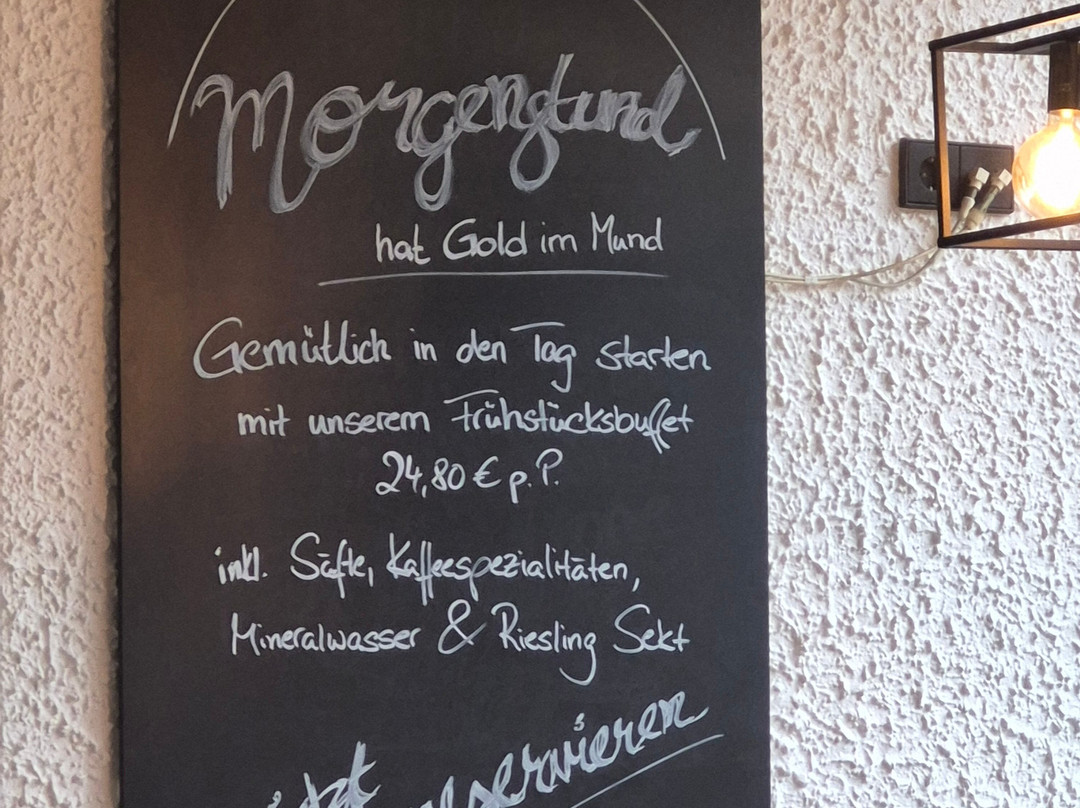 Morgenstund
hat Gold im Mund
Gemütlich in den Tag starten
mit unserem Frühstücksbuffet
24,80 € p.P.
inkl. Säfte, Kaffeespezialitäten,
Mineralwasser & Riesling Sekt
jetzt reservieren